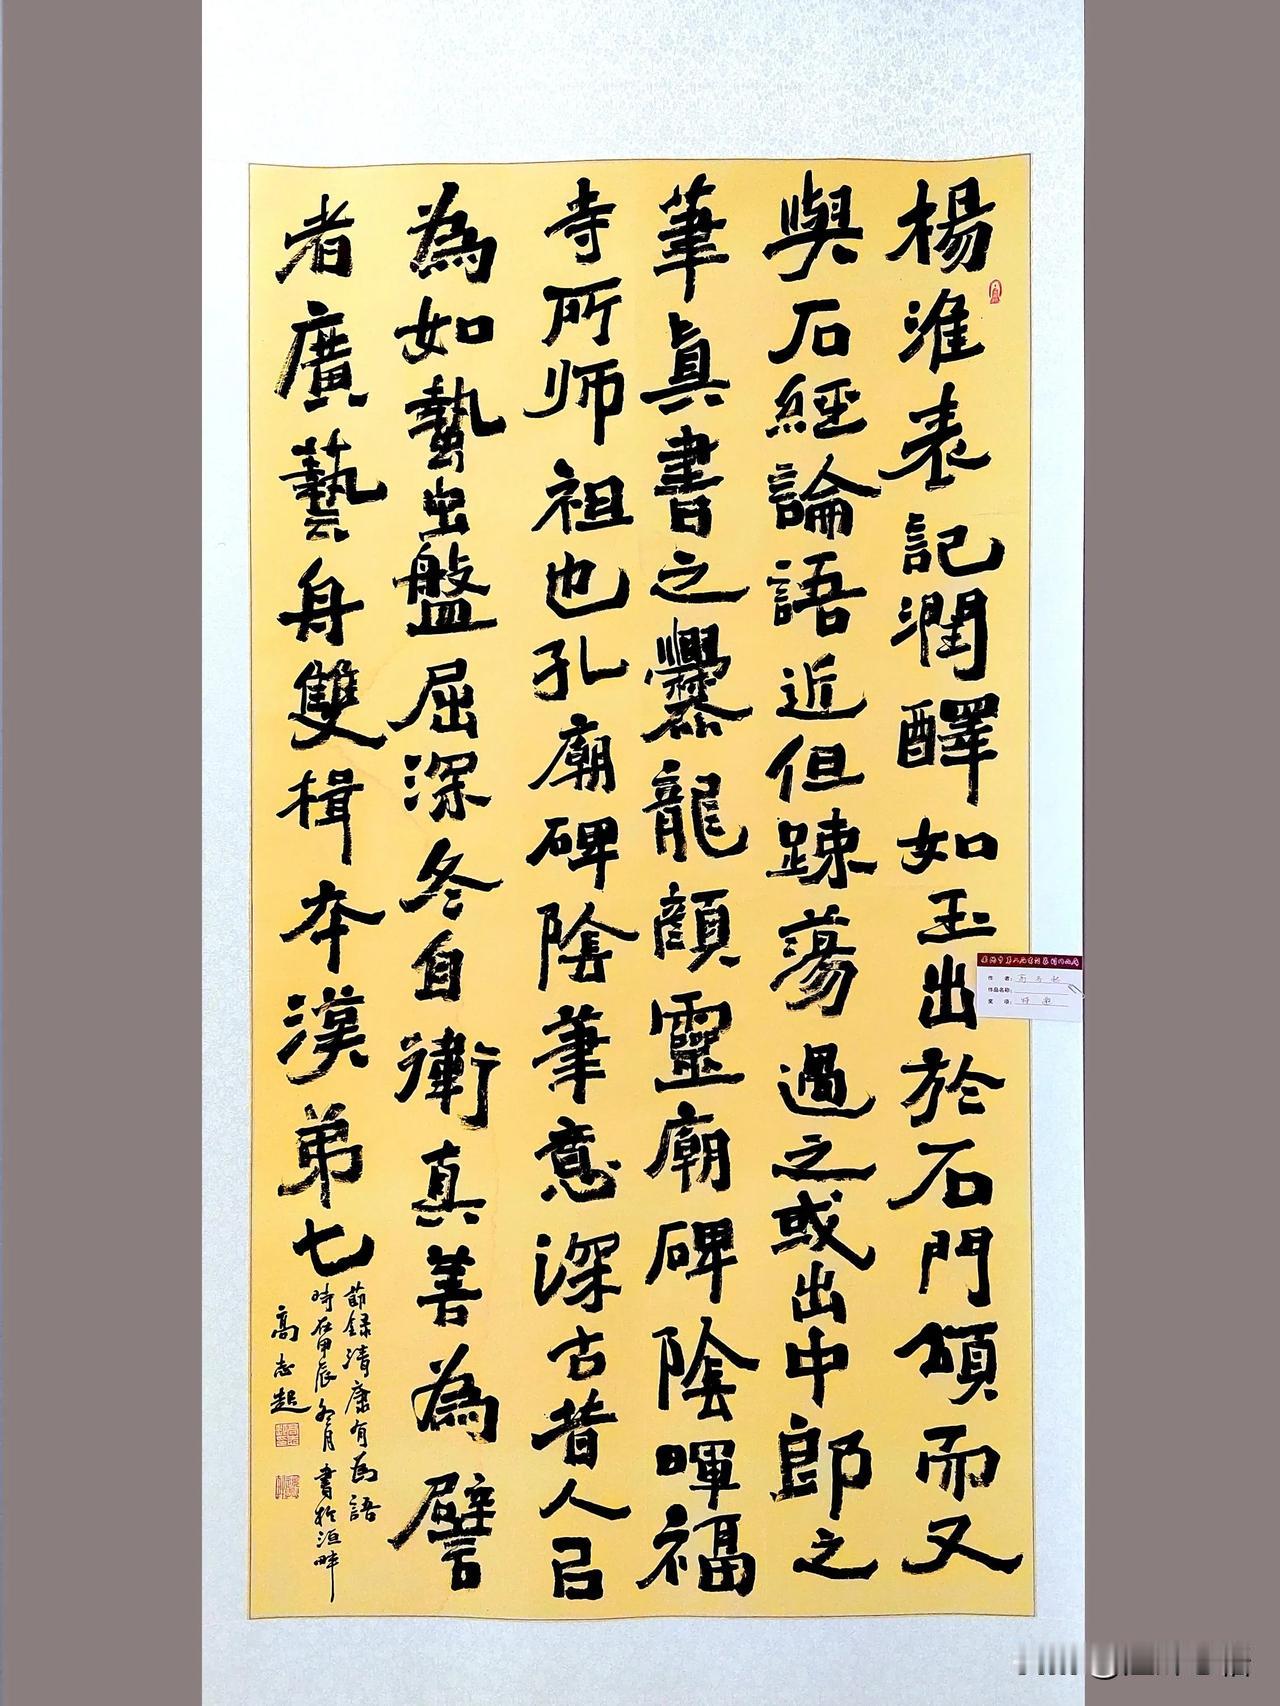 楊淮表記潤醳如玉出於石門頌而又
與石經論語近但踈蕩過之或出中郎之
筆真書之爨龍顏靈廟碑陰暉福
寺所师祖也孔廟碑陰筆意深古昔人㠯
為如蟄虫盤屈深冬自衛真善為譬
者廣藝舟雙楫本漢弟七
節録清康有為語
時在甲辰冬月書於洹畔
高志起
作者:
作品名称:
奖项: